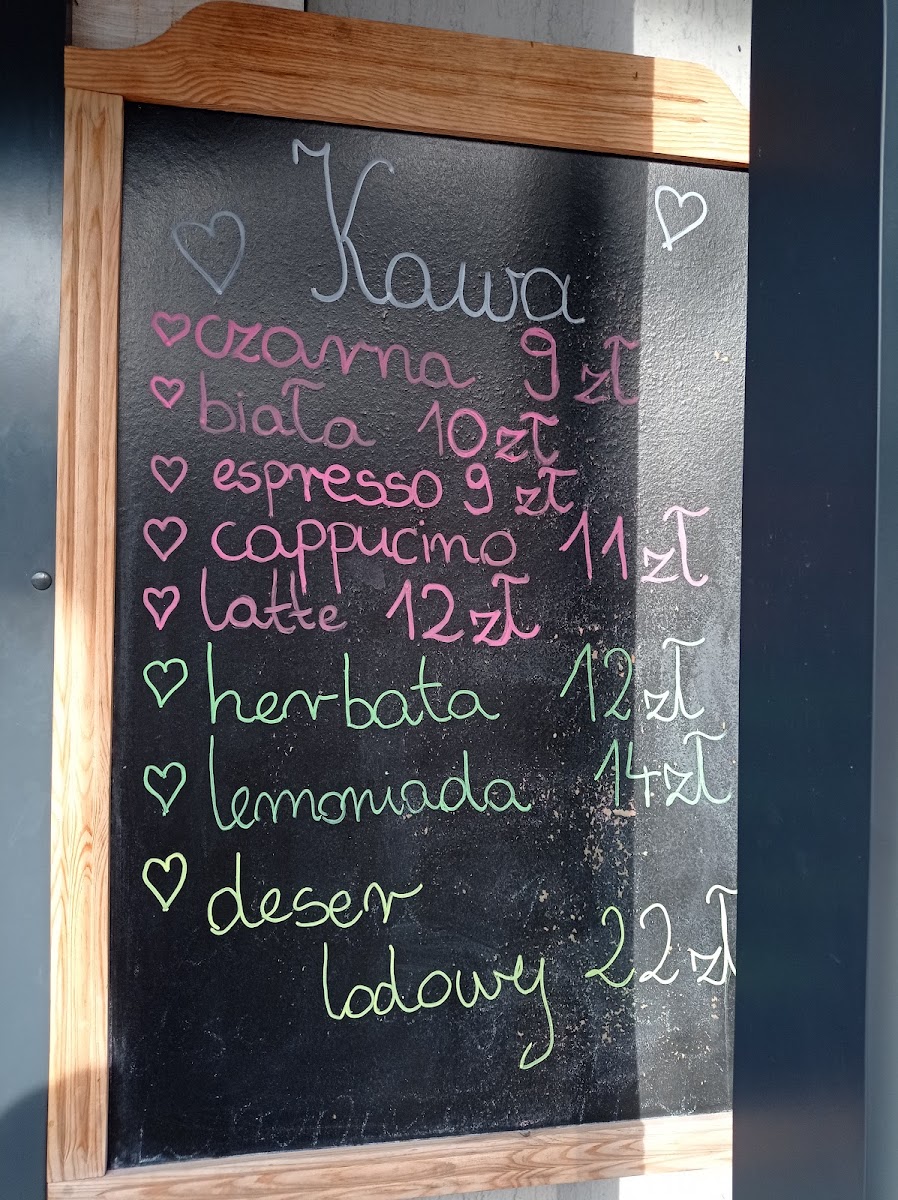 Kawa
czarna 9 zł
biała 10 zł
espresso 9 zł
cappucino 11 zł
latte 12 zł
herbata 12 zł
lemoniada 14 zł
deser
lodowy 22 zł